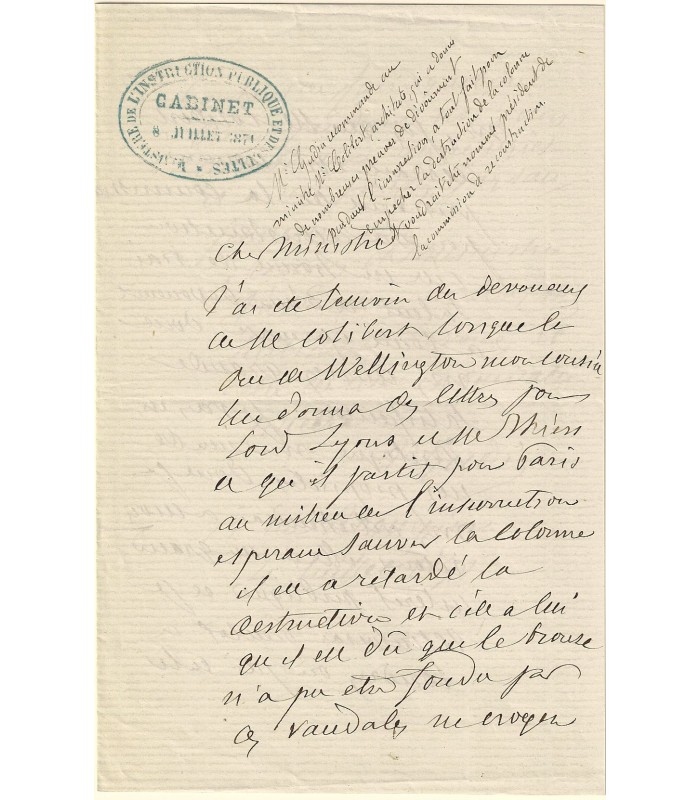 MINISTÈRE DE L'INSTRUCTION PUBLIQUE ET DES CULTES
CABINET
8 JUILLET 1871
Mr Gudin recommande au
ministre Mr Colibert architecte, qui a donné
de nombreuses preuves de dévouement
pendant l'insurrection, a tout fait pour
empêcher la destruction de la colonne
et voudrait être nommé président de
la commission de reconstruction.
Cher Ministre
J'ai ete temoin du devouement
de Mr Colibert lorsque le
Duc de Wellington mon cousin
lui donna des lettres pour
Lord Lyons et Mr Thiers
et qu'il partit pour Paris
au milieu de l'insurrection
esperant sauver la Colonne
il en a retardé la
destruction et c'est a lui
qu'il est dû que le bronze
n'a pu etre fondu par
ces vandales ne croyez